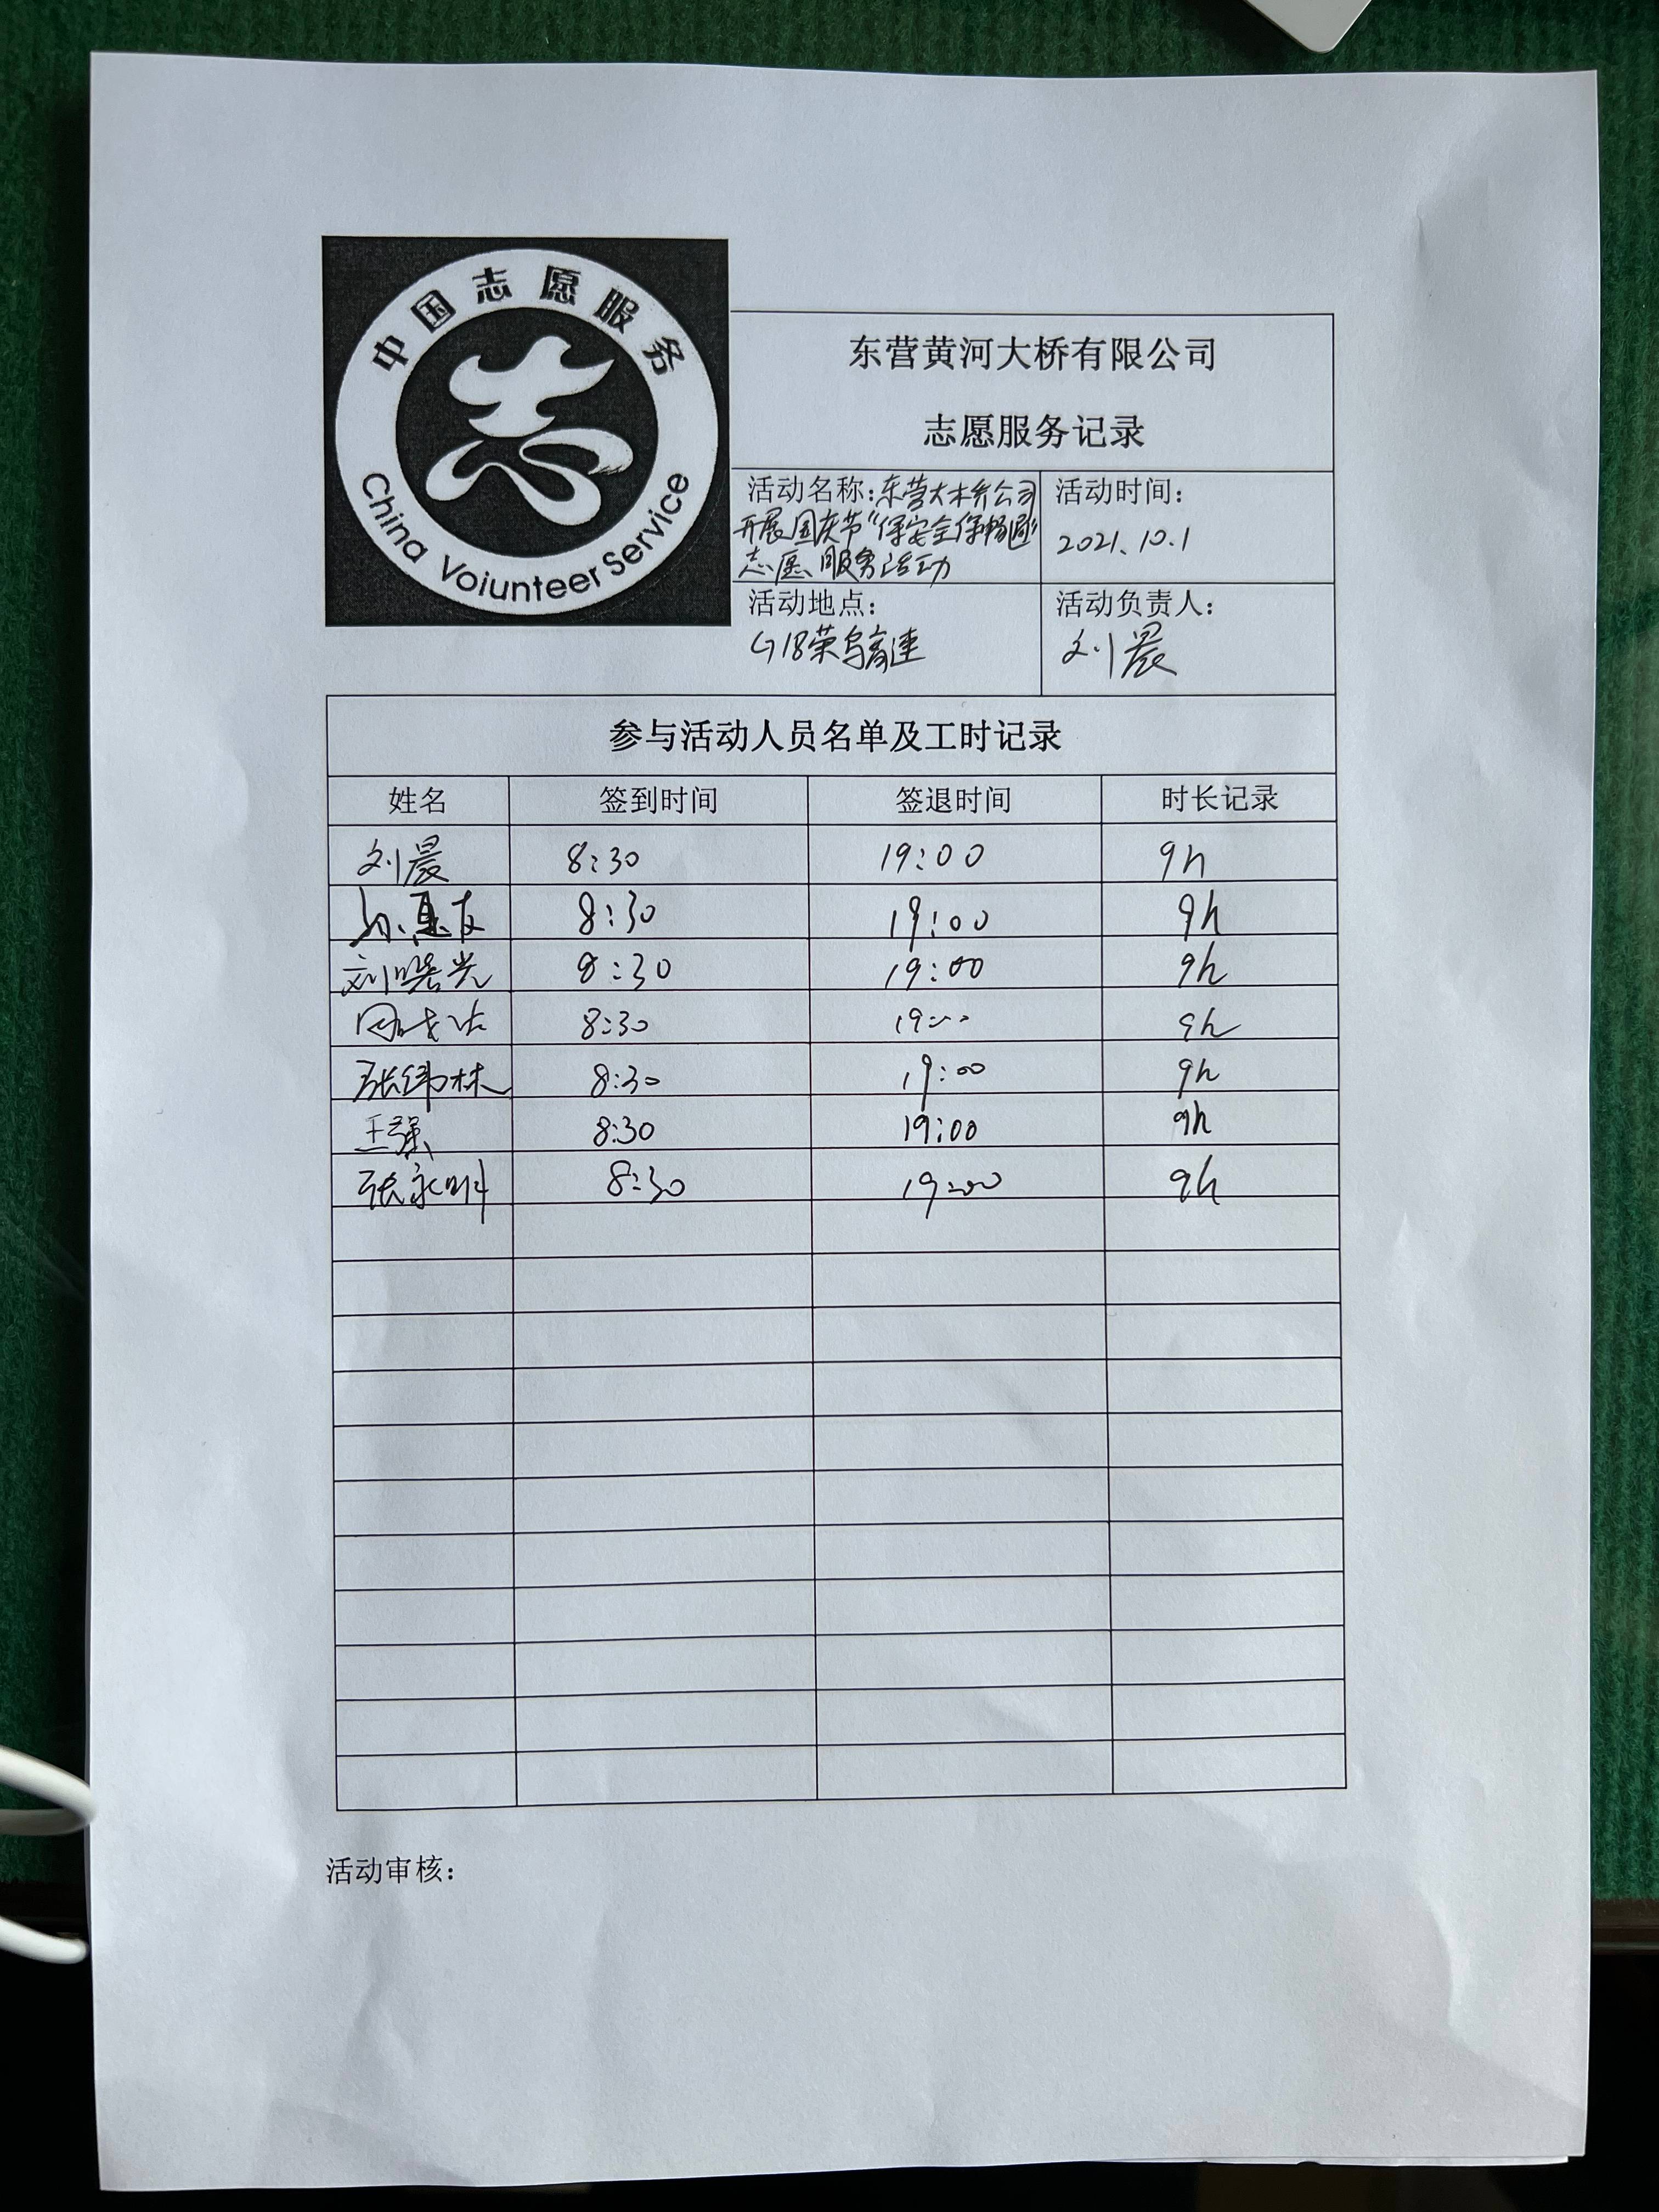 中国志愿服务
China Voiunteer Service
东营黄河大桥有限公司
志愿服务记录
活动名称：东营大桥公司
开展国庆节“保安全保畅通”
志愿服务活动
活动时间：
2021.10.1
活动地点：
G18荣乌高速
活动负责人：
刘晨
参与活动人员名单及工时记录
姓名 签到时间 签退时间 时长记录
刘晨 8:30 19:00 9h
8:30 19:00 9h
刘皓光 8:30 19:00 9h
8:30 19:00 9h
张纬林 8:30 19:00 9h
王强 8:30 19:00 9h
张永明 8:30 19:00 9h
活动审核：